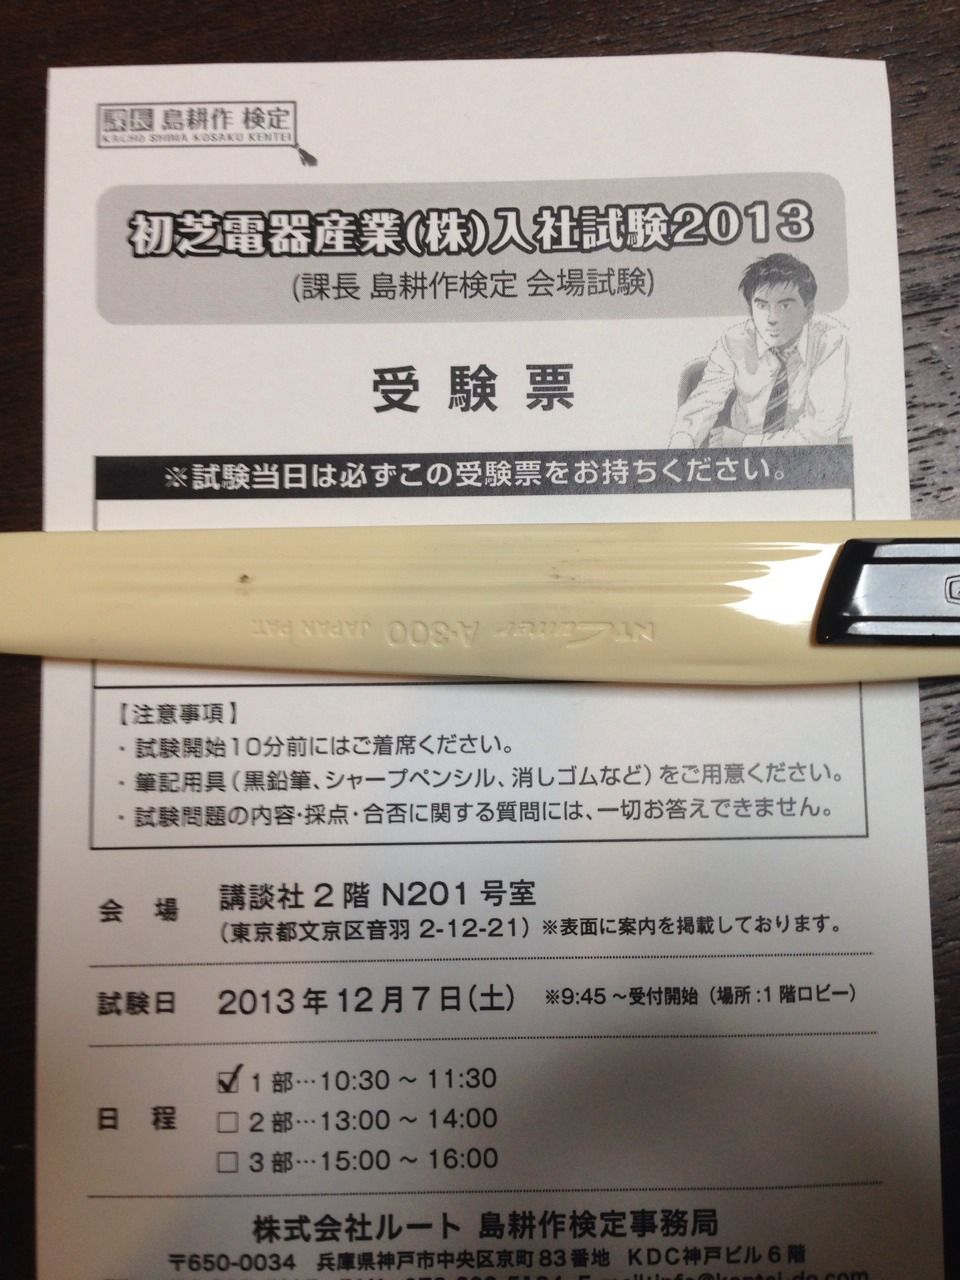 課長 島耕作 検定
KACHO SHIMA KOSAKU KENTEI
初芝電器産業(株)入社試験2013
(課長 島耕作検定 会場試験)
受験票
※試験当日は必ずこの受験票をお持ちください。
NT Cutter A-300 JAPAN PAT.
【注意事項】
・試験開始10分前にはご着席ください。
・筆記用具(黒鉛筆、シャープペンシル、消しゴムなど)をご用意ください。
・試験問題の内容・採点・合否に関する質問には、一切お答えできません。
会場 講談社2階 N201号室
(東京都文京区音羽 2-12-21) ※表面に案内を掲載しております。
試験日 2013年12月7日(土) ※9:45~受付開始(場所:1階ロビー)
1部…10:30~11:30
日程 2部…13:00~14:00
3部…15:00~16:00
株式会社ルート 島耕作検定事務局
〒650-0034 兵庫県神戸市中央区京町83番地 KDC神戸ビル6階